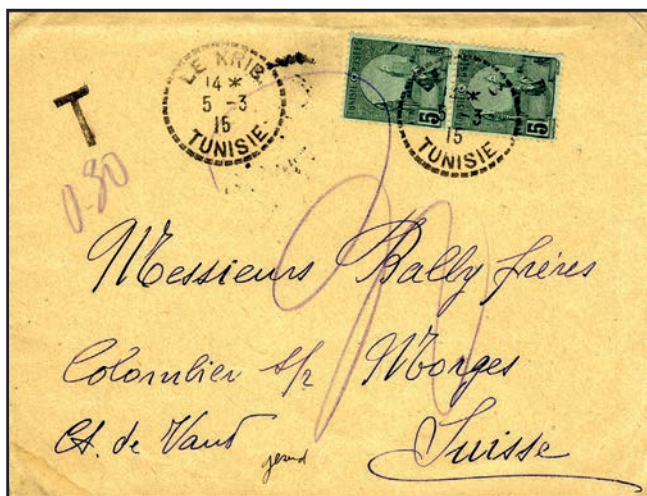 LE KRIB
14 *
5 -3
15
TUNISIE
POSTES
5
5
15
TUNISIE
T
0-80
Messieurs Bally frères
Colombier s/ Morges
Ct. de Vaud
Suisse